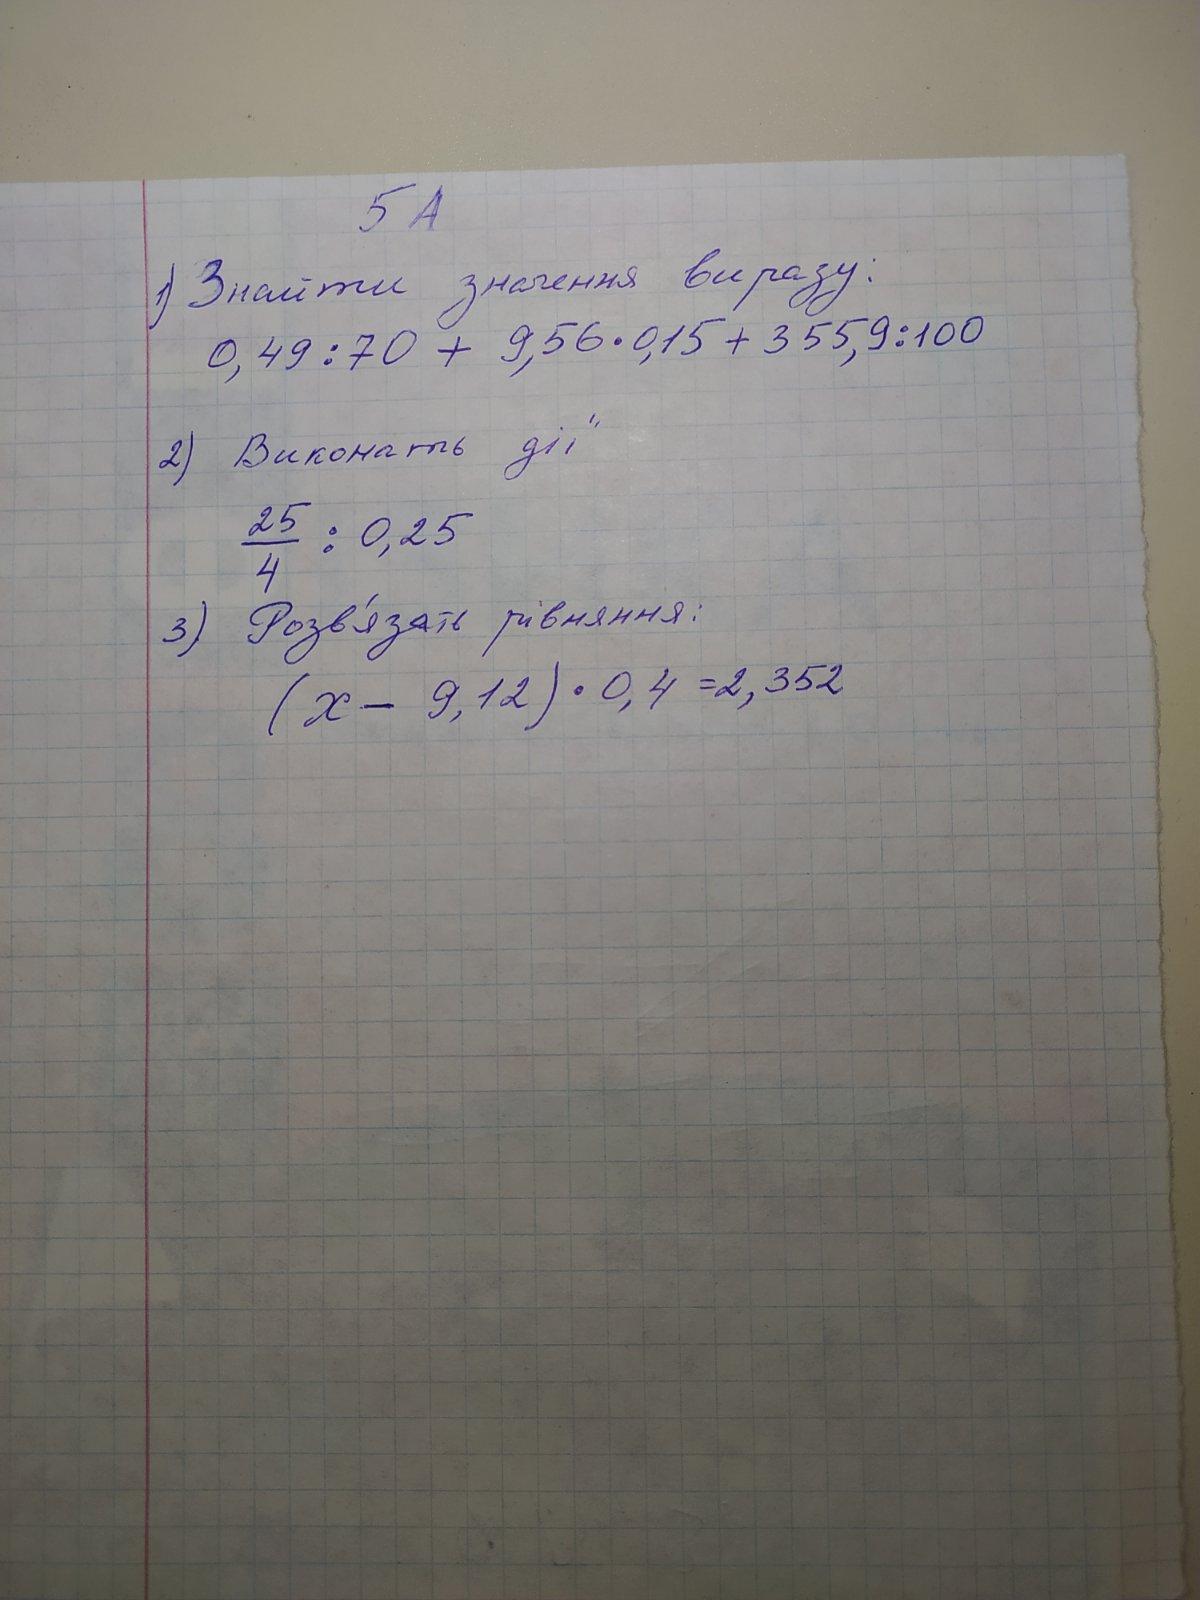 5 А
1) Знайти значення виразу:
0,49:70 + 9,56·0,15+355,9:100
2) Виконать дії
25/4 : 0,25
3) Розв'язать рівняння:
(х - 9,12)·0,4=2,352